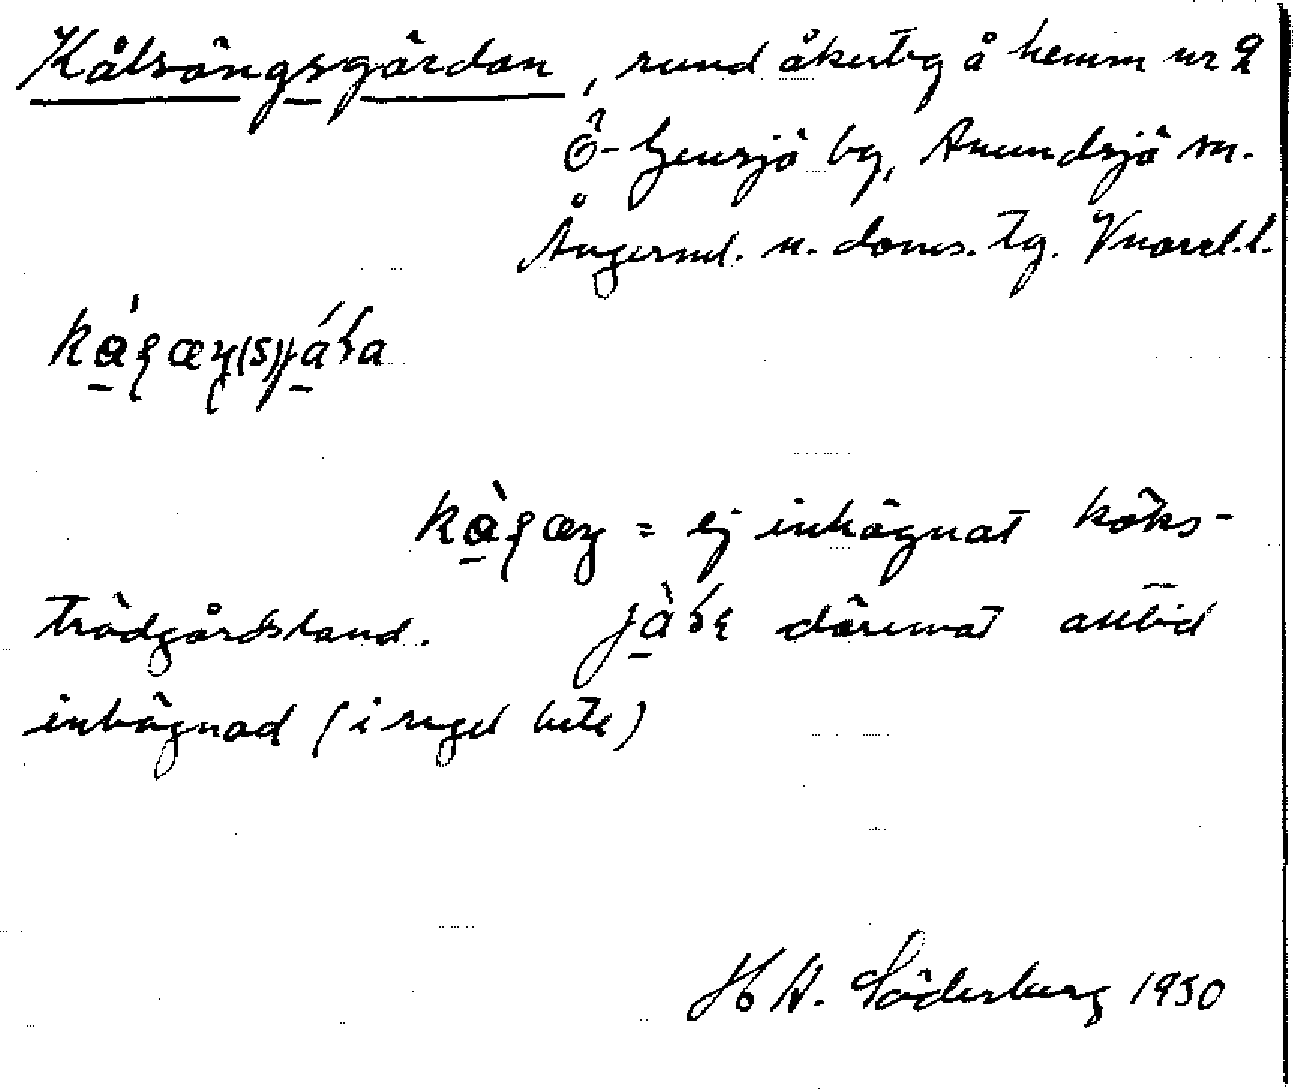 Kålsängsgärdan, rund åkerteg å hemm nr 2
Ö-Gensjö by, Anundsjö sn.
Ångermd. n. doms. tg. Vnorrl.l.
= ej inhägnat köks-
trädgårdsland. däremot alltid
inhägnad (i regel bete)
H A. Söderberg 1930